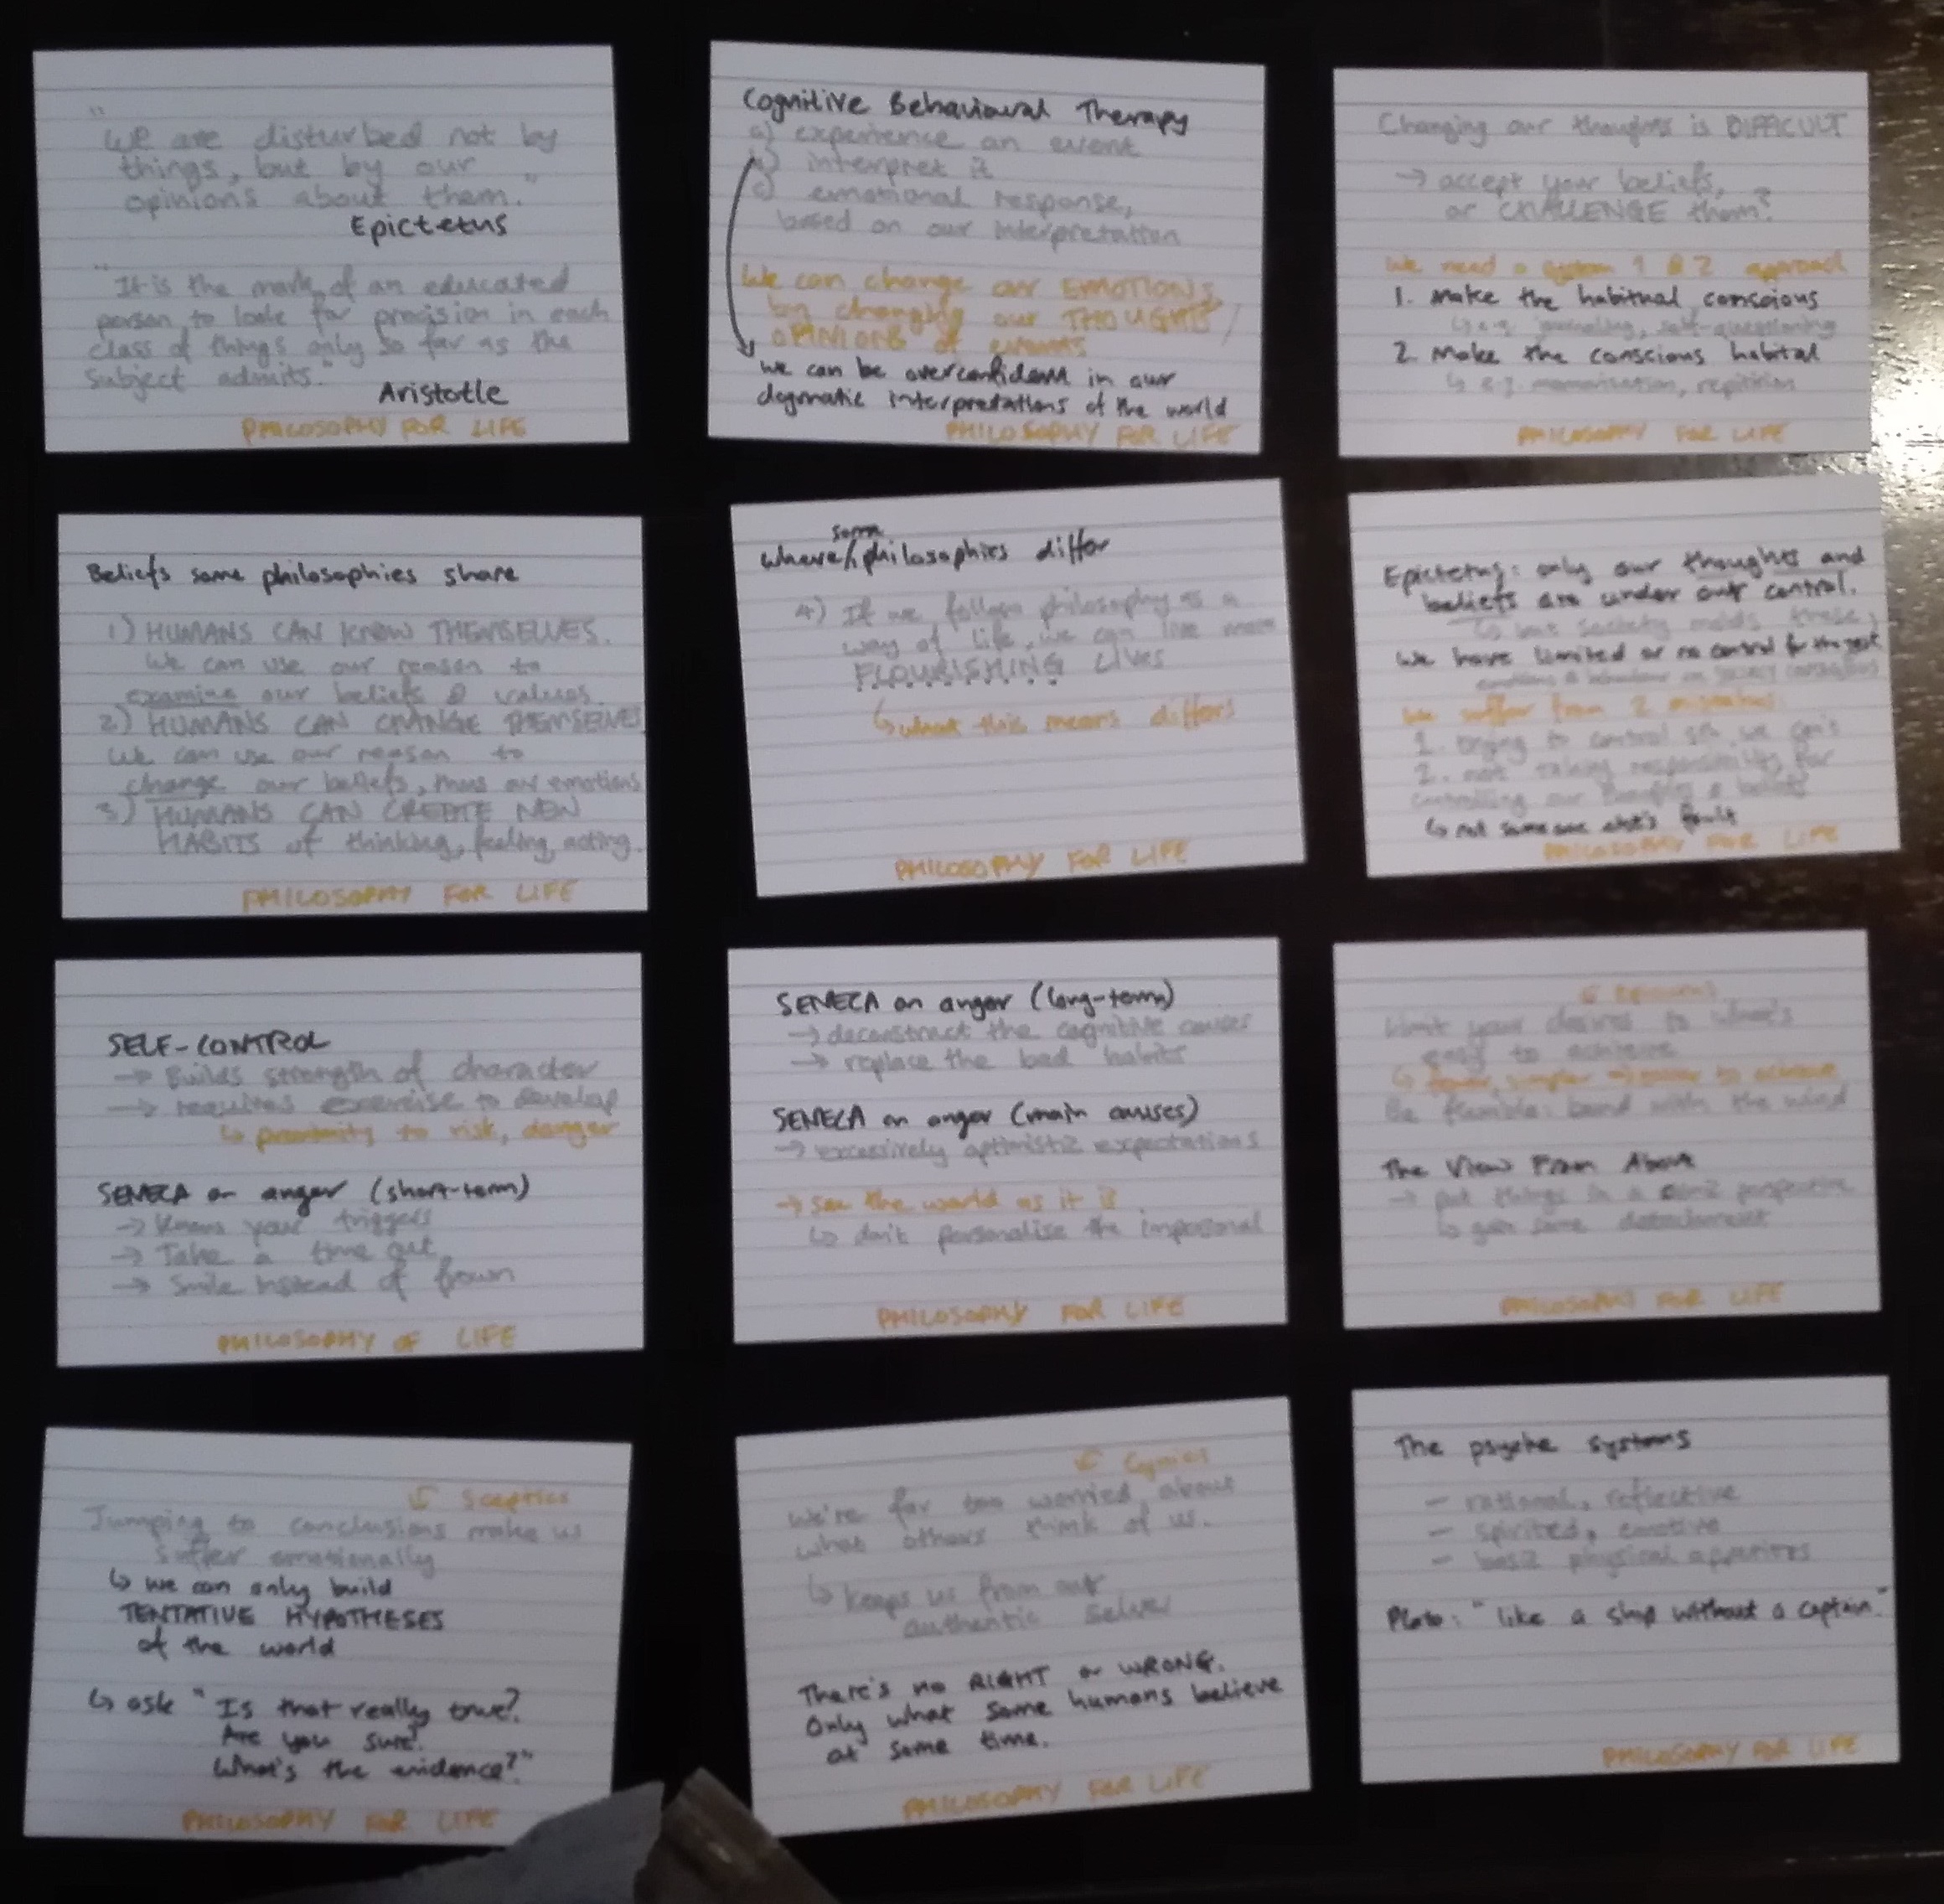 "
We are disturbed not by
things, but by our
opinions about them."
Epictetus
"It is the mark of an educated
person to look for precision in each
class of things only so far as the
subject admits."
Aristotle
PHILOSOPHY FOR LIFE
Cognitive Behavioural Therapy
a) experience an event
b) interpret it
c) emotional response,
based on our interpretation
We can change our EMOTIONS
by changing our THOUGHTS/
OPINIONS of events
we can be overconfident in our
dogmatic interpretations of the world
PHILOSOPHY FOR LIFE
Changing our thoughts is DIFFICULT
→ accept your beliefs,
or CHALLENGE them?
We need a system 1 & 2 approach
1. Make the habitual conscious
↳ e.g. journaling, self-questioning
2. Make the conscious habital
↳ e.g. memorisation, repitition
PHILOSOPHY FOR LIFE
Beliefs some philosophies share
1) HUMANS CAN KNOW THEMSELVES.
We can use our reason to
examine our beliefs & values.
2) HUMANS CAN CHANGE THEMSELVES
We can use our reason to
change our beliefs, thus our emotions
3) HUMANS CAN CREATE NEW
HABITS of thinking, feeling, acting.
PHILOSOPHY FOR LIFE
some
where philosophies differ
4) If we follow philosophy as a
way of life, we can live more
FLOURISHING LIVES
↳ what this means differs
PHILOSOPHY FOR LIFE
Epictetus: only our thoughts and
beliefs are under our control.
↳ but society molds these,
We have limited or no control for the rest
emotions & behaviour
We suffer from 2 mistakes:
1. trying to control sth we can't
2. not taking responsibility for
controlling our thoughts & beliefs
↳ not someone else's fault
PHILOSOPHY FOR LIFE
SELF-CONTROL
→ Builds strength of character
→ requires exercise to develop
↳ proximity to risk, danger
SENECA on anger (short-term)
→ Know your triggers
→ Take a time out
→ Smile instead of frown
PHILOSOPHY OF LIFE
SENECA on anger (long-term)
→ deconstruct the cognitive causes
→ replace the bad habits
SENECA on anger (main causes)
→ excessively optimistic expectations
→ see the world as it is
↳ don't personalise the impersonal
PHILOSOPHY FOR LIFE
Limit your desires to what's
easy to achieve
↳ fewer, simpler → easier to achieve
Be flexible: bend with the wind
The View From Above
→ put things in a cosmic perspective
↳ gain some detachment
PHILOSOPHY FOR LIFE
↶ Sceptics
Jumping to conclusions make us
suffer emotionally
↳ we can only build
TENTATIVE HYPOTHESES
of the world
↳ ask "Is that really true?
Are you sure?
What's the evidence?"
PHILOSOPHY FOR LIFE
↶ Cynics
We're far too worried about
what others think of us.
↳ keeps us from our
authentic selves
There's no RIGHT or WRONG.
Only what some humans believe
at some time.
PHILOSOPHY FOR LIFE
The psyche systems
- rational, reflective
- spirited, emotive
- basic physical appetites
Plato: "like a ship without a captain."
PHILOSOPHY FOR LIFE